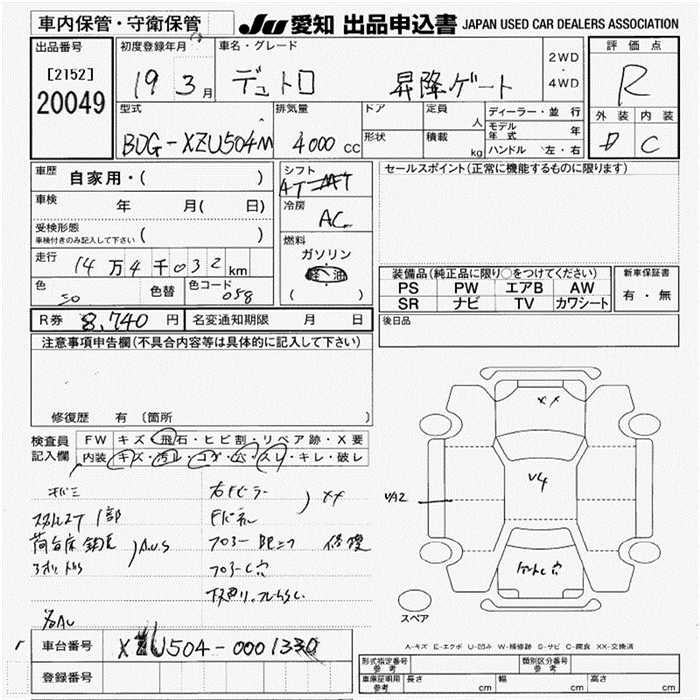 車内保管・守衛保管
JU 愛知 出品申込書 JAPAN USED CAR DEALERS ASSOCIATION
出品番号 [2152] 20049
初度登録年月 19 3月
車名・グレード デュトロ 昇降ゲート
2WD・4WD
評価点 R
外装 D 内装 C
型式 BDG-XZU504M
排気量 4000 CC
ドア 定員 人
形状 積載 kg
ディーラー・並行
モデル年式 年
ハンドル 左・右
車歴 自家用・( )
車検 年 月( 日)
受検形態 車検付きのみ記入して下さい ( )
走行 14万4千032 km
色 色替 色コード 058
シフト AT MT
冷房 AC
燃料 ガソリン
軽油
( )
セールスポイント(正常に機能するものに限ります)
装備品(純正品に限り○をつけてください)
PS PW エアB AW
SR ナビ TV カワシート
新車保証書 有・無
R券 8,740 円 名変通知期限 月 日
後日品
注意事項申告欄(不具合内容等は具体的に記入して下さい)
修復歴 有 (箇所
検査員記入欄
FW キズ・飛石・ヒビ割・リペア跡・X要
内装 キズ・汚レ・コゲ・穴・スレ・キレ・破レ
キバミ
1部
荷台床
右Fピラー
XX
修復
XX
V4
UA2
ゲートC穴
スペア
A-キズ E-エクボ U-凹み W-補修跡 S-サビ C-腐食 XX-交換済
車台番号 XZU504-0001330
登録番号
形式指定番号 参考 類別区分番号 参考
車庫証明用 参考 長さ cm 幅 cm 高さ cm